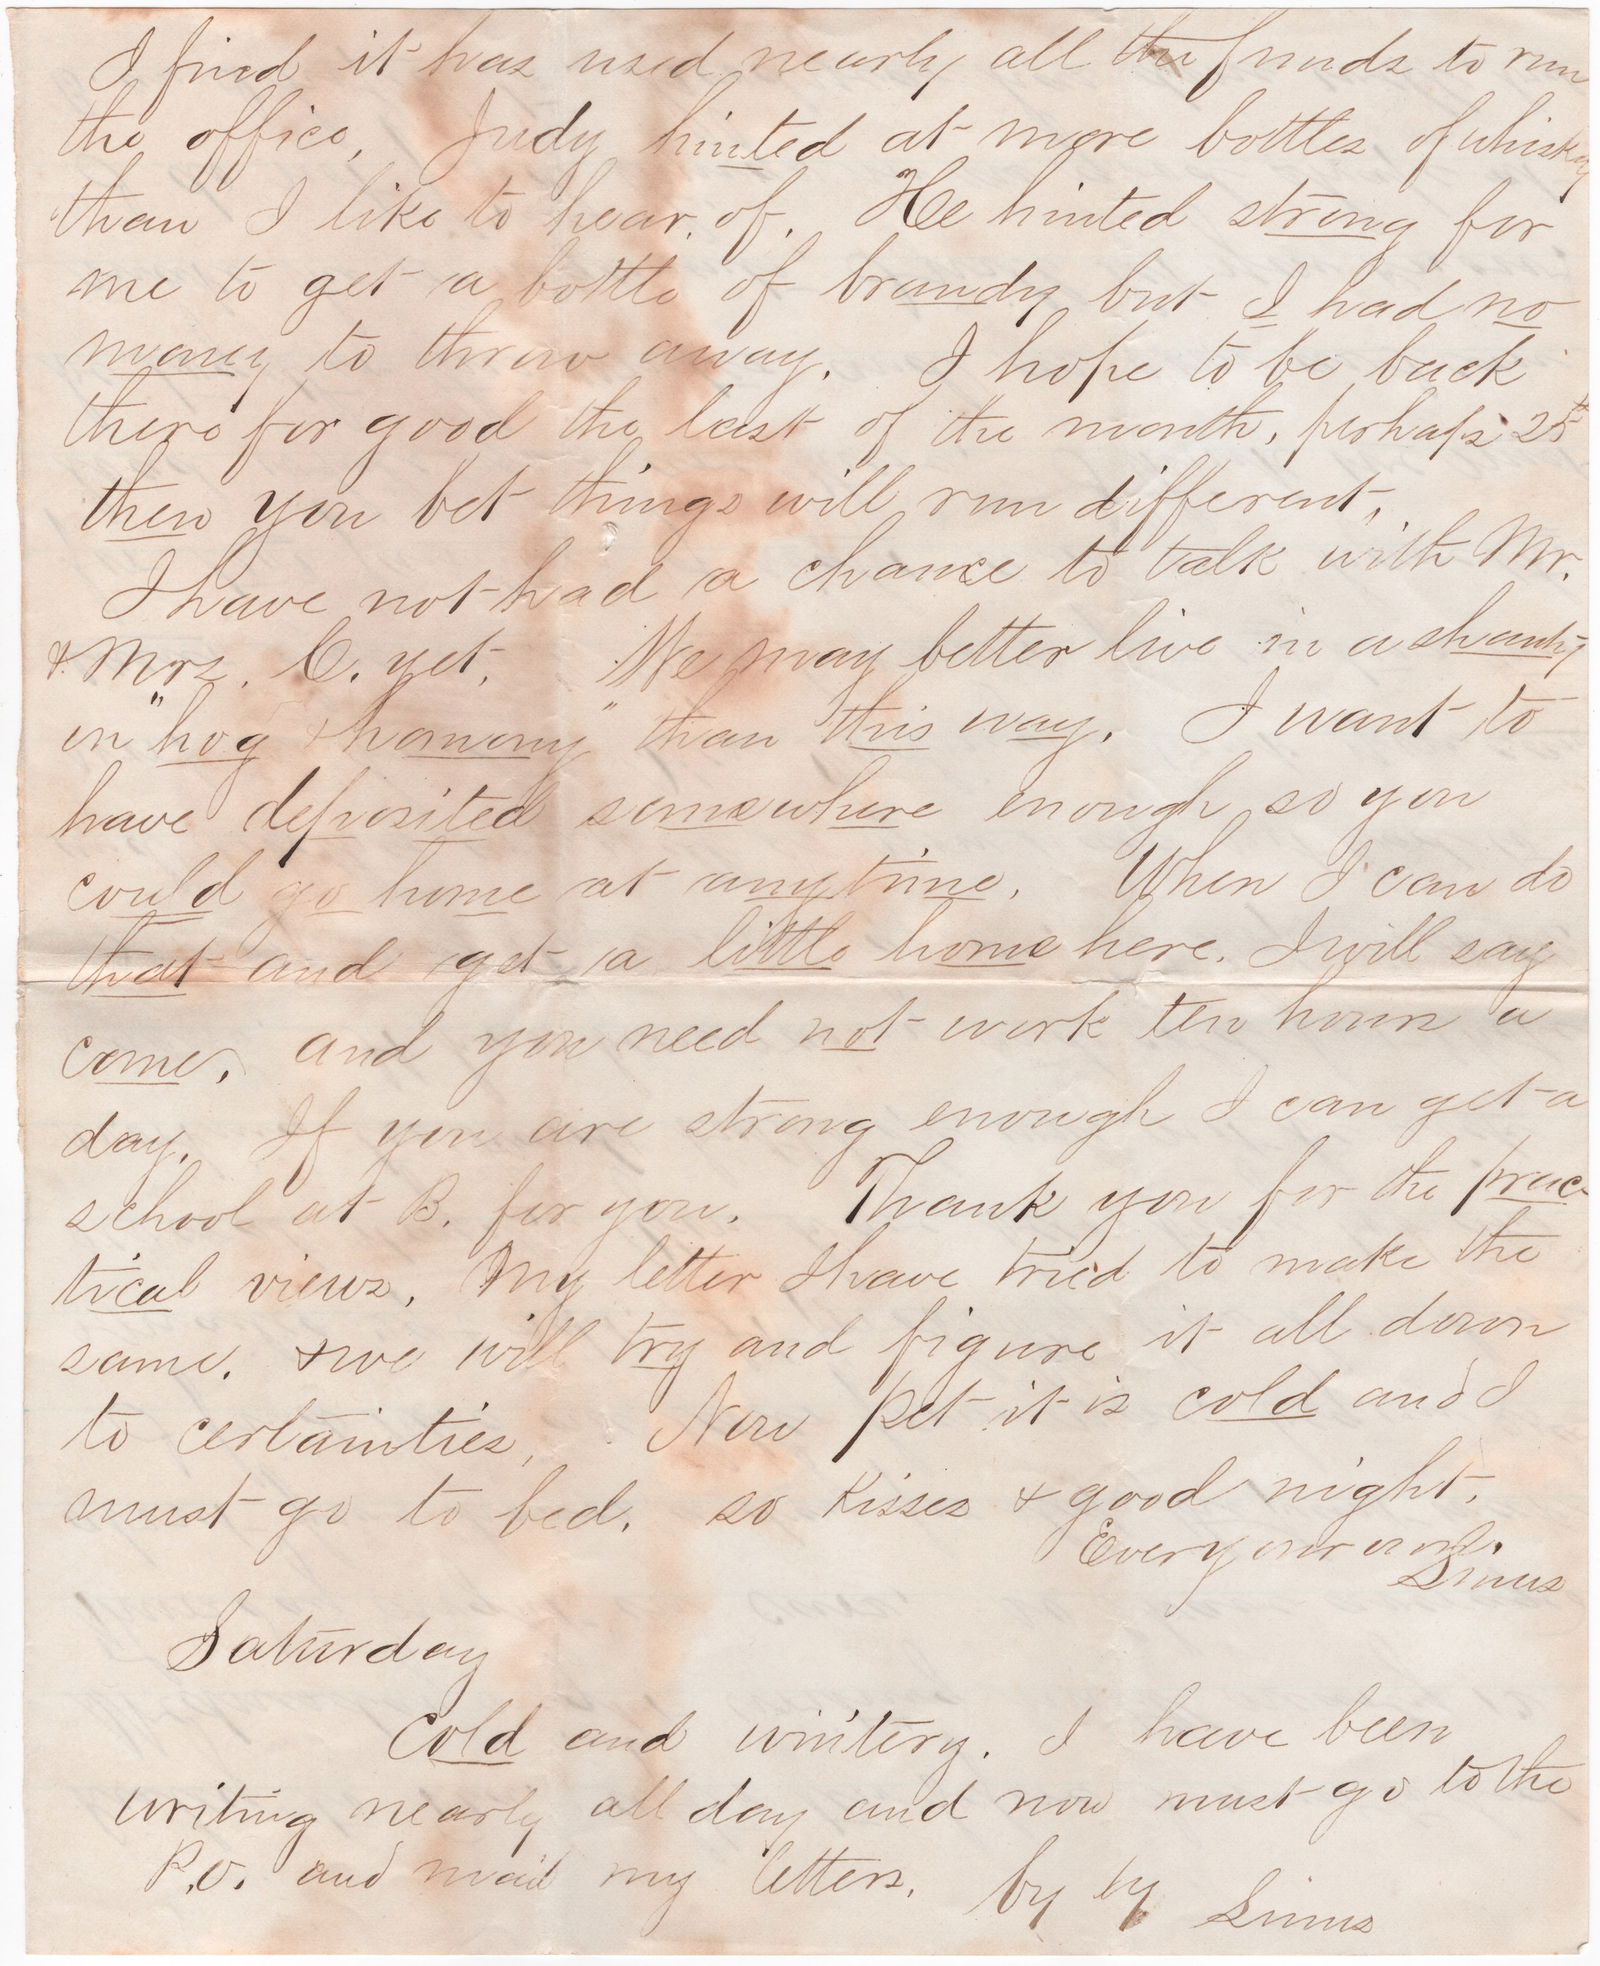 I find it has used nearly all the funds to run
the office, Judy hinted at more bottles of whiskey
than I like to hear of. He hinted strong for
me to get a bottle of brandy but I had no
money to throw away. I hope to be back
there for good the last of the month, perhaps 25th
then you bet things will run different,
I have not had a chance to talk with Mr.
& Mrs. C. yet, We may better live in a shanty
in "hog & homony" than this way. I want to
have deposited somewhere enough so you
could go home at anytime. When I can do
that and get a little home here. I will say
come, and you need not work ten hours a
day. If you are strong enough I can get a
school at B. for you. Thank you for the prac
tical views, My letter I have tried to make the
same. & we will try and figure it all down
to certainties, Now pet it is cold and I
must go to bed. so kisses & good night,
Ever your own.
Linus
Saturday
Cold and wintery. I have been
writing nearly all day and now must go to the
P.O. and mail my letters. by by Linus